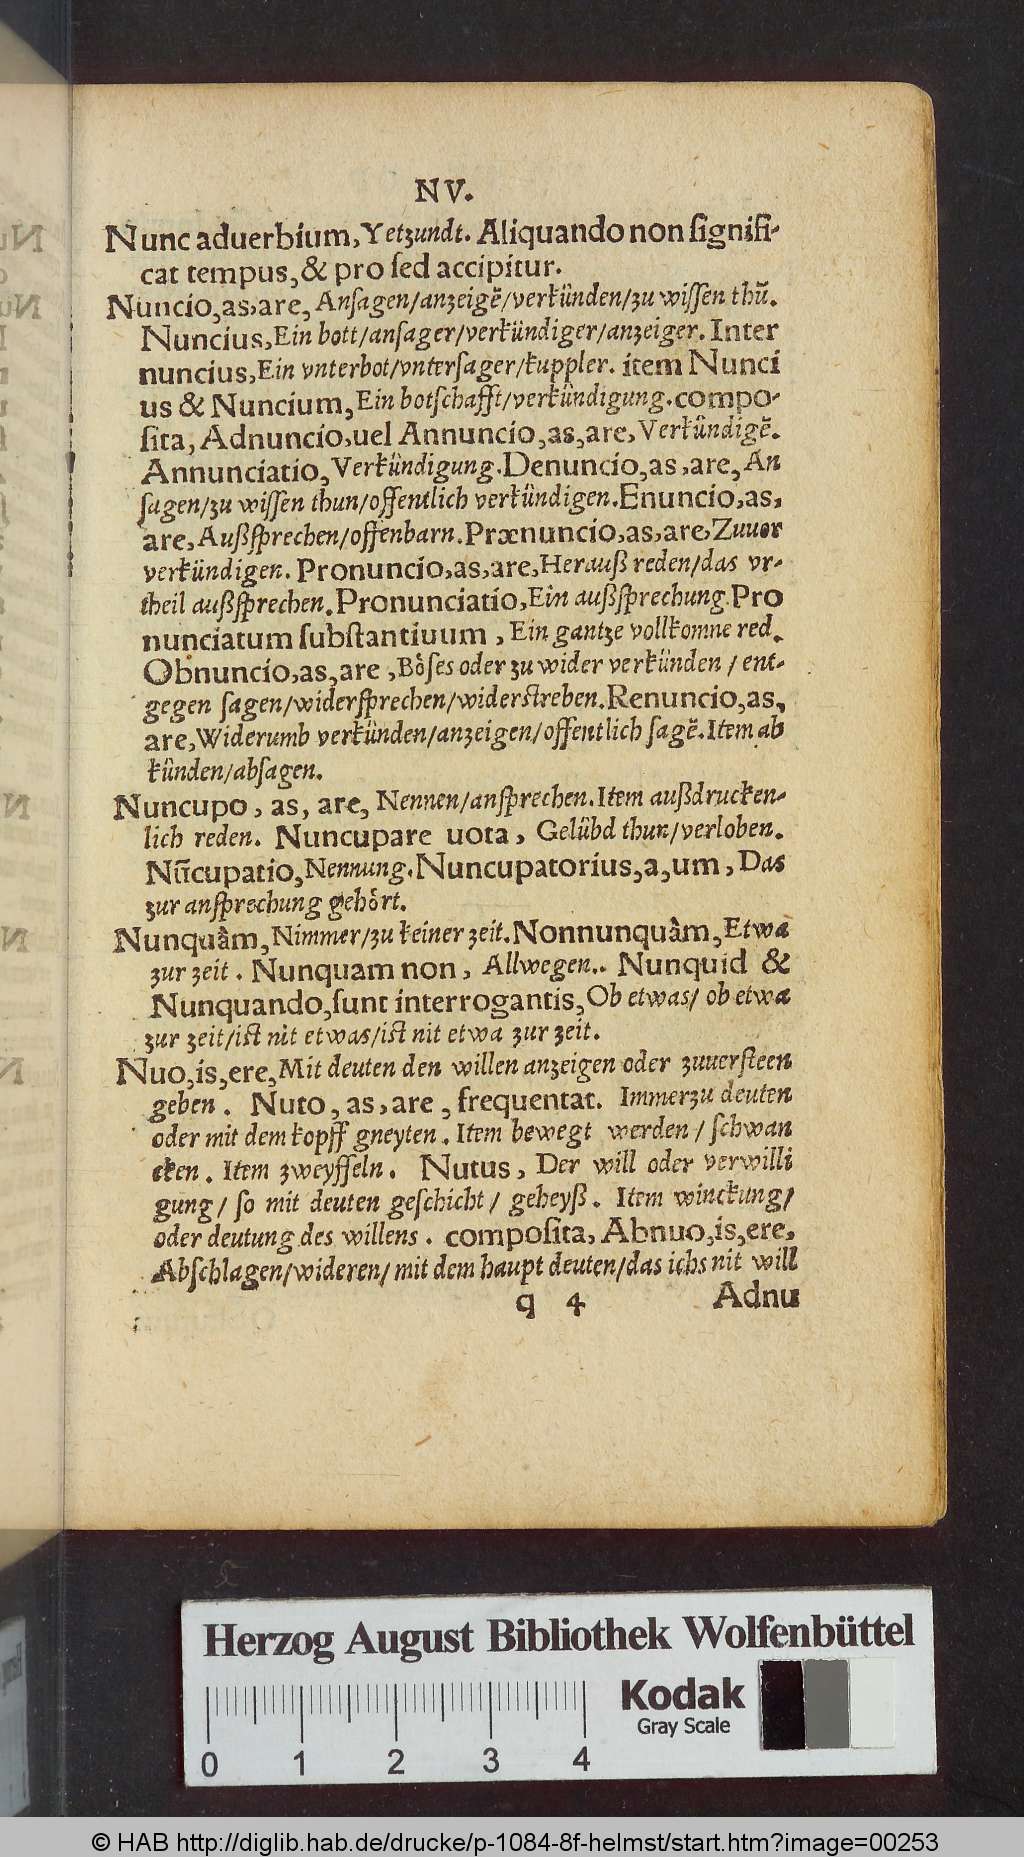 NV.
Nunc aduerbium, Yetzundt. Aliquando non ſignifi-
cat tempus, & pro ſed accipitur.
Nuncio, as, are, Anſagen/anzeigẽ/verkünden/zu wiſſen thũ.
Nuncius, Ein bott/anſager/verkündiger/anzeiger. Inter
nuncius, Ein vnterbot/vnterſager/kuppler. item Nunci
us & Nuncium, Ein botſchafft/verkündigung. compo-
ſita, Adnuncio, uel Annuncio, as, are, Verkündigẽ.
Annunciatio, Verkündigung. Denuncio, as, are, An
ſagen/zu wiſſen thun/offentlich verkündigen. Enuncio, as,
are, Außſprechen/offenbarn. Prænuncio, as, are, Zuuor
verkündigen. Pronuncio, as, are, Herauß reden/das vr-
theil außſprechen. Pronunciatio, Ein außſprechung. Pro
nunciatum ſubſtantiuum, Ein gantze vollkomne red.
Obnuncio, as, are, Bôſes oder zu wider verkünden / ent-
gegen ſagen/widerſprechen/widerſtreben. Renuncio, as,
are, Widerumb verkünden/anzeigen/offentlich ſagẽ. Item ab
künden/abſagen.
Nuncupo, as, are, Nennen/anſprechen. Item außdrucken-
lich reden. Nuncupare uota, Gelübd thun/verloben.
Nũcupatio, Nennung. Nuncupatorius, a, um, Das
zur anſprechung gehôrt.
Nunquàm, Nimmer/zu keiner zeit. Nonnunquàm, Etwa
zur zeit. Nunquam non, Allwegen.. Nunquid &
Nunquando, ſunt interrogantis, Ob etwas/ ob etwa
zur zeit/iſt nit etwas/iſt nit etwa zur zeit.
Nuo, is, ere, Mit deuten den willen anzeigen oder zuuerſteen
geben. Nuto, as, are, frequentat. Immerzu deuten
oder mit dem kopff gneyten. Item bewegt werden / ſchwan
cken. Item zweyffeln. Nutus, Der will oder verwilli
gung/ ſo mit deuten geſchicht/ geheyß. Item winckung/
oder deutung des willens. compoſita, Abnuo, is, ere,
Abſchlagen/wideren/ mit dem haupt deuten/das ichs nit will
q 4 Adnu
Herzog August Bibliothek Wolfenbüttel
Kodak
Gray Scale
0 1 2 3 4
© HAB http://diglib.hab.de/drucke/p-1084-8f-helmst/start.htm?image=00253